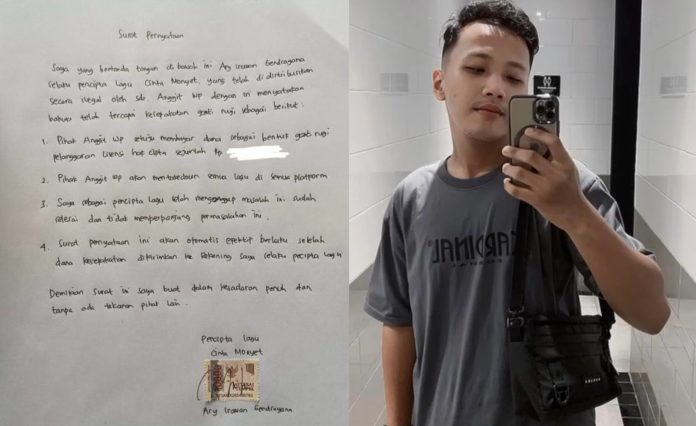 Surat Pernyataan
Saya yang bertanda tangan di bawah ini Ary Irawan Gendragana
Selaku pencipta lagu Cinta Monyet, yang telah di distribusikan
secara ilegal oleh sdr. Anggit Wp dengan ini menyatakan
bahwa telah tercapai kesepakatan ganti rugi sebagai berikut :
1. Pihak Anggit Wp setuju membayar dana sebagai bentuk ganti rugi
pelanggaran lisensi hak cipta sejumlah Rp
2. Pihak Anggit Wp akan mentakedown semua lagu di semua platform
3. Saya sebagai pencipta lagu telah menganggap masalah ini sudah
selesai dan tidak memperpanjang permasalahan ini .
4. Surat pernyataan ini akan otomatis efektif berlaku setelah
dana kesepakatan dikirimkan ke Rekening saya selaku pecipta lagu
Demikian surat ini saya buat dalam kesadaran penuh dan
tanpa ada tekanan pihak lain .
Percipta lagu
Cinta Monyet
Ary Irawan Gendragana
CARDINAL